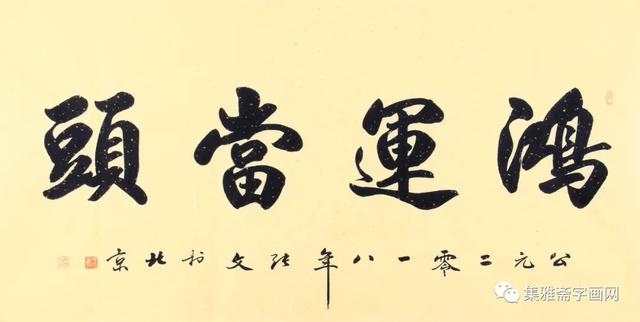 鴻運當頭
公元二零一八年張文於北京
集雅斋字画网